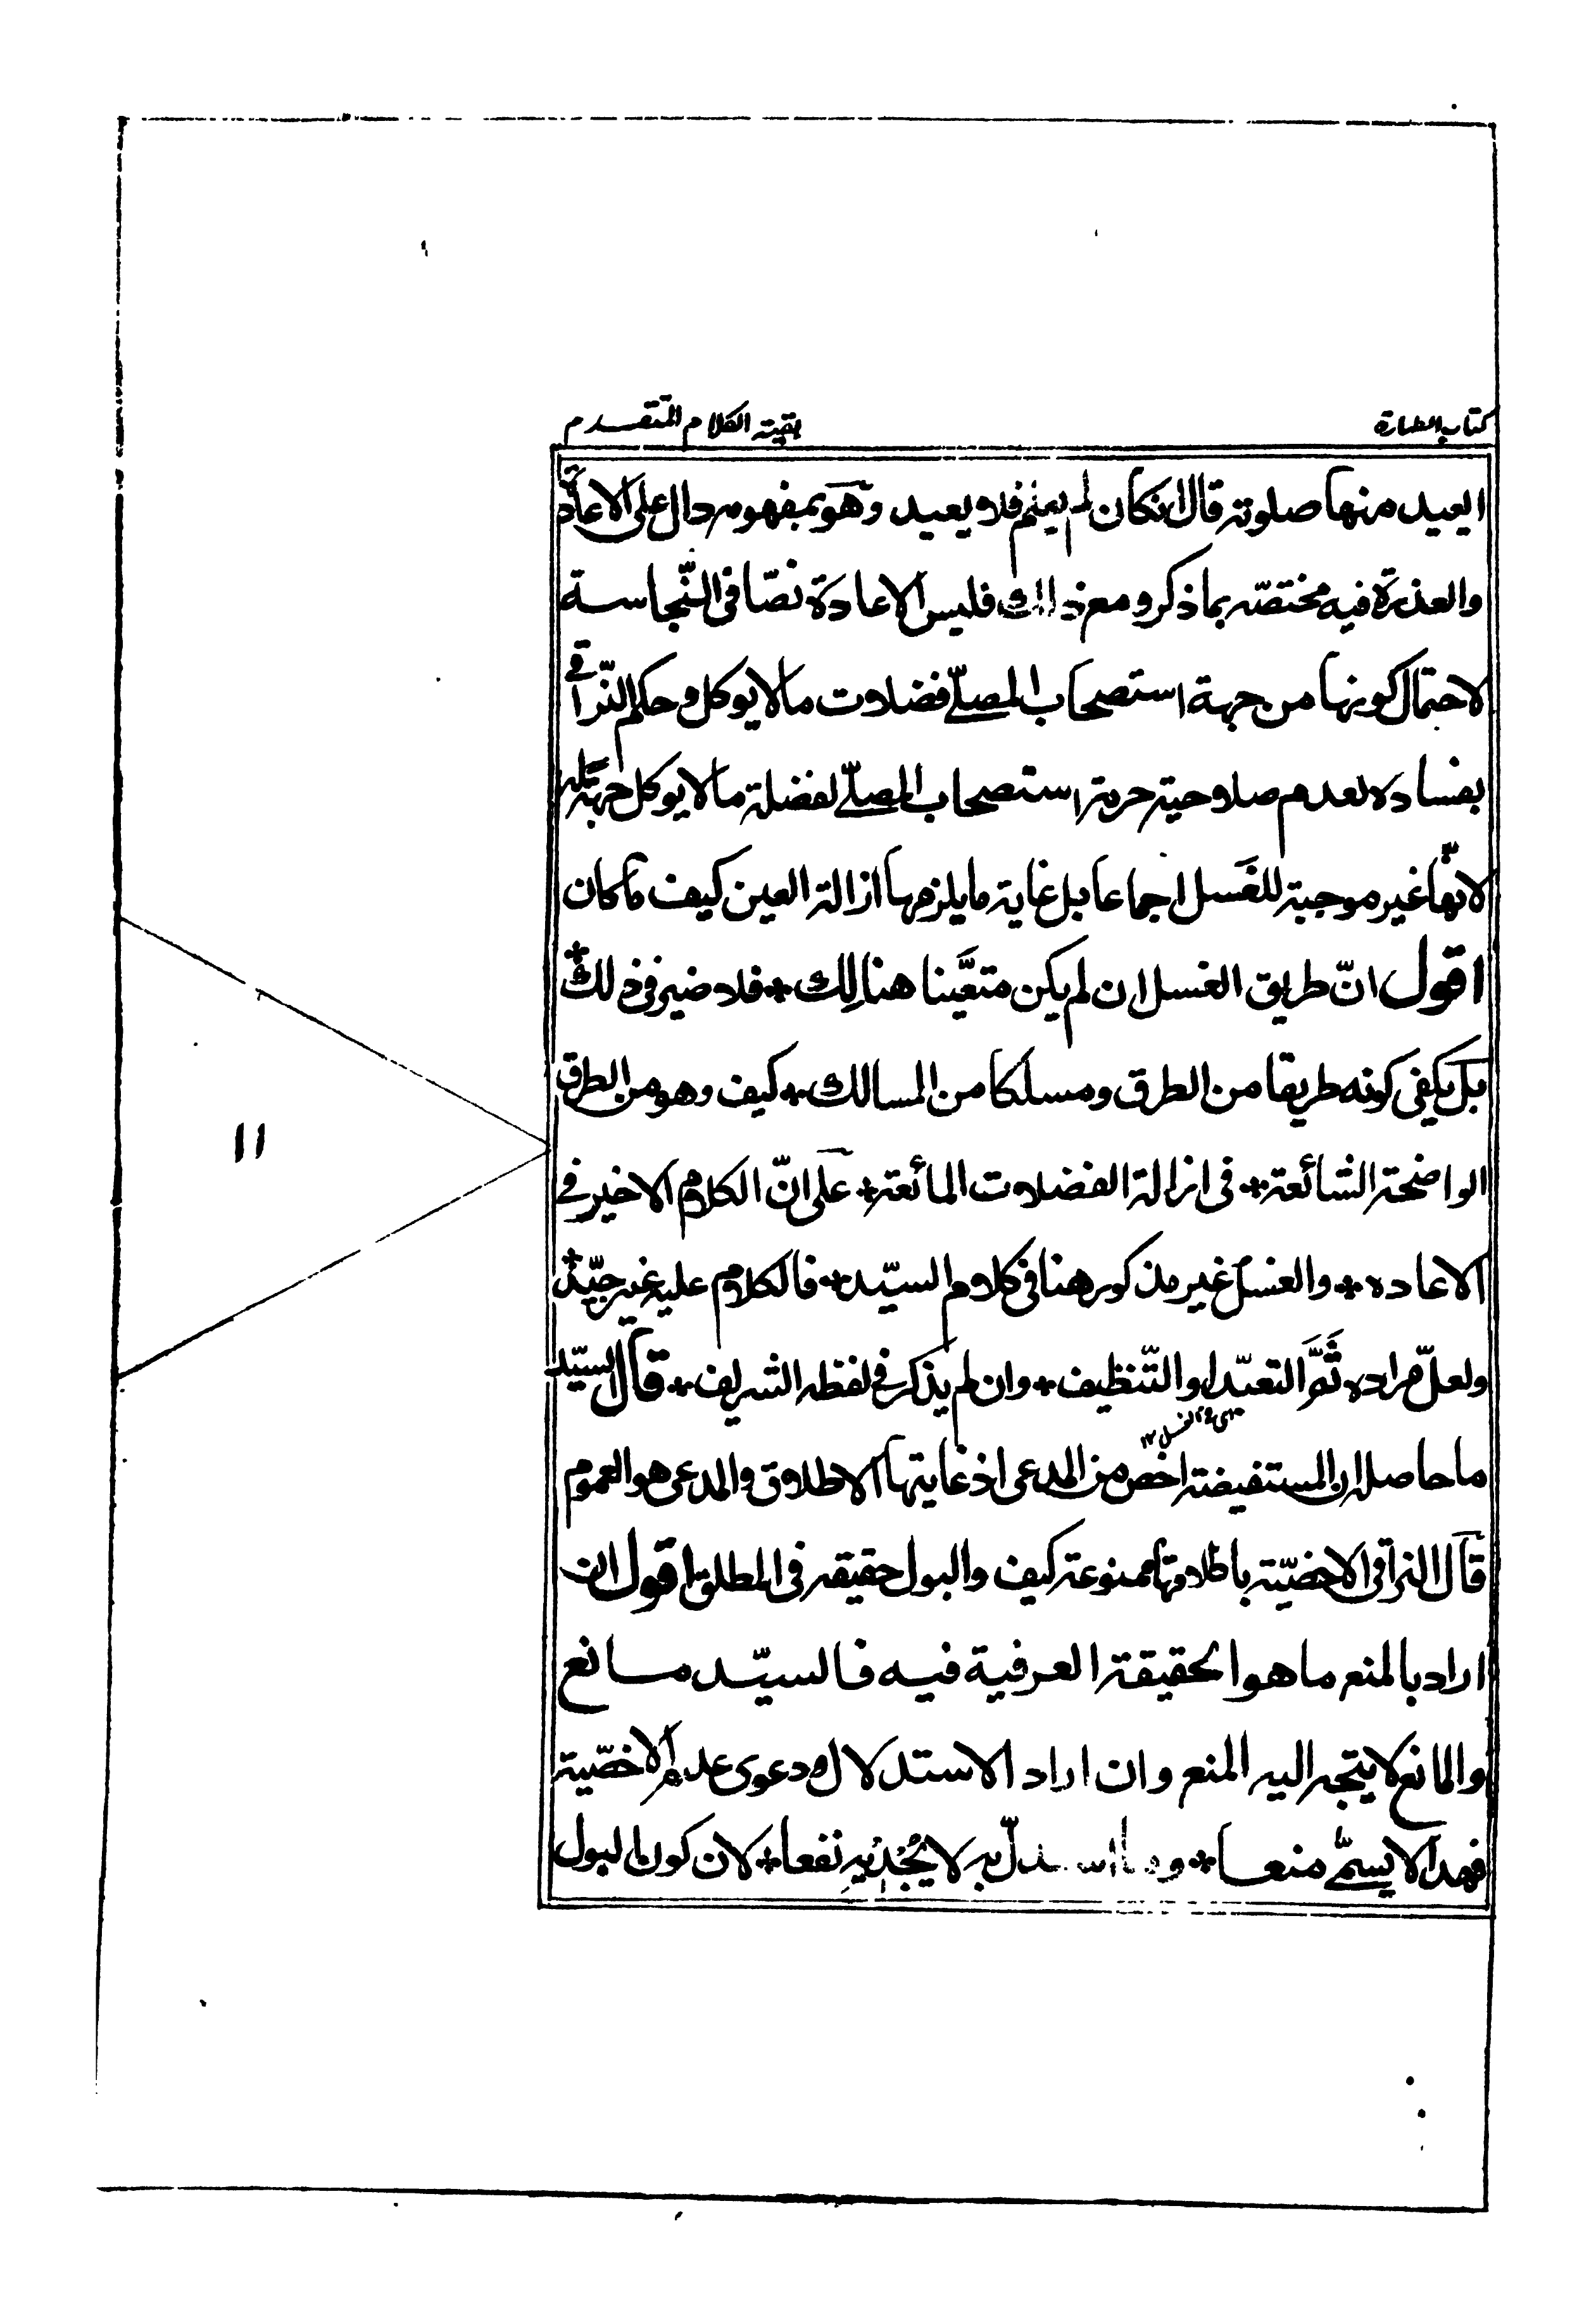 كتاب الطهارة
بقية الكلام المتقدم
ايعيد منها صلوته قال انكان لم يعلم فلا يعيد وهو بمفهومه دال على الاعادة
والعذرة فيه مختصّه بما ذكر ومع ذالك فليس الاعادة نصّا فى النّجاسة
لاحتمال كونها من جهة استصحاب المصلّے فضلات مالا يوكل وحكم النّراقے
بفساده لعدم صلاحيته حرمة استصحاب المصلّے لفضلة مالا يوكل جهة له
لانّها غير موجبة للغَسل اجماعا بل غاية ما يلزمها ازالة العين كيف ما كان
اقول انّ طريق الغسل ان لم يكن متعيَّنا هنالِك * فلا ضير فى ذلك *
بل يكفى كونه طريقا من الطرق ومسلكا من المسالك * كيف وهو من الطرق
الواضحة الشائعة * فى ازالة الفضلات المائعة * على انّ الكلام الاخير فے
الاعاده * والغسل غير مذكور هنا فى كلام السيّد * فالكلام عليه غير جيّد *
ولعلّ مراده ثَمَّ التعبّد او التّنظيف * وان لم يذكر فے لفظه الشريف * قال السيّد
ما حاصله ان المستفيضة اخص من المدعى اذ غايتها الاطلاق والمدعى هو العموم
قال النراقى الاخصّية باطلاقها ممنوعة كيف والبول حقيقه فى المطلق اقول ان
اراد بالمنع ما هو الحقيقة العرفية فيه فالسيّد مانع
والمانع لا يتجه اليه المنع وان اراد الاستدلال ودعوى عدم الاخصّية
فهذا لا يسمّے منعا * وما استدلّ به لا يُجْدِيهِ نفعا * لان كون البول
١١